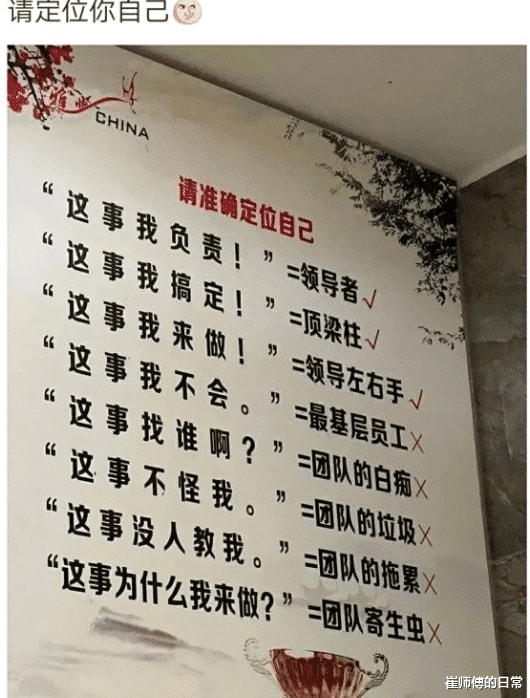 请定位你自己
CHINA
请准确定位自己
“这事我负责！”=领导者✓
“这事我搞定！”=顶梁柱✓
“这事我来做！”=领导左右手✓
“这事我不会。”=最基层员工×
“这事找谁啊？”=团队的白痴×
“这事不怪我。”=团队的垃圾×
“这事没人教我。”=团队的拖累×
“这事为什么我来做？”=团队寄生虫×
崔师傅的日常